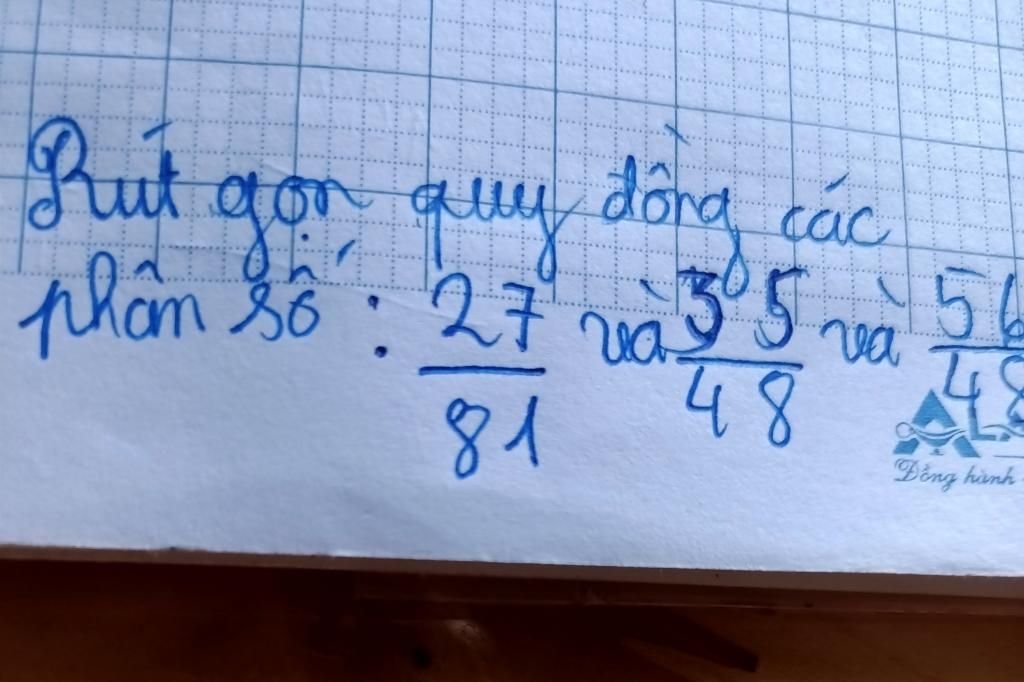 Rút gọn quy đồng các
phân số : 27/81 và 35/48 và 56/48
Đồng hành